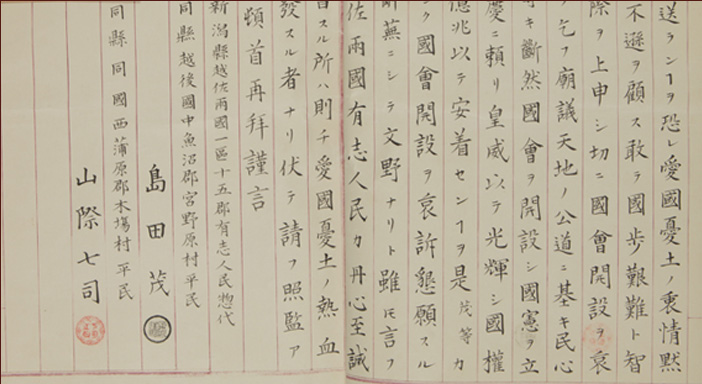 送ランヿヲ恐レ愛國憂土ノ衷情黙
不遜ヲ顧ス敢テ國歩艱難ト智
際ヲ上申シ切ニ國會開設ヲ哀
乞フ廟議天地ノ公道ニ基キ民心
キ斷然國會ヲ開設シ國憲ヲ立
慶ニ頼リ皇威以テ光輝シ國權
億兆以テ安着センヿヲ是茂等カ
ク國會開設ヲ哀訴懇願スル
蕪ニシテ文野ナリト雖モ言フ
佐兩國有志人民カ丹心至誠
スル所ハ則チ愛國憂土ノ熱血
發スル者ナリ伏テ請フ照監ア
頓首再拜謹言
新潟縣越佐兩國一區十五郡有志人民惣代
同縣越後國中魚沼郡宮野原村平民
島田茂
同縣同國西蒲原郡木塲村平民
山際七司